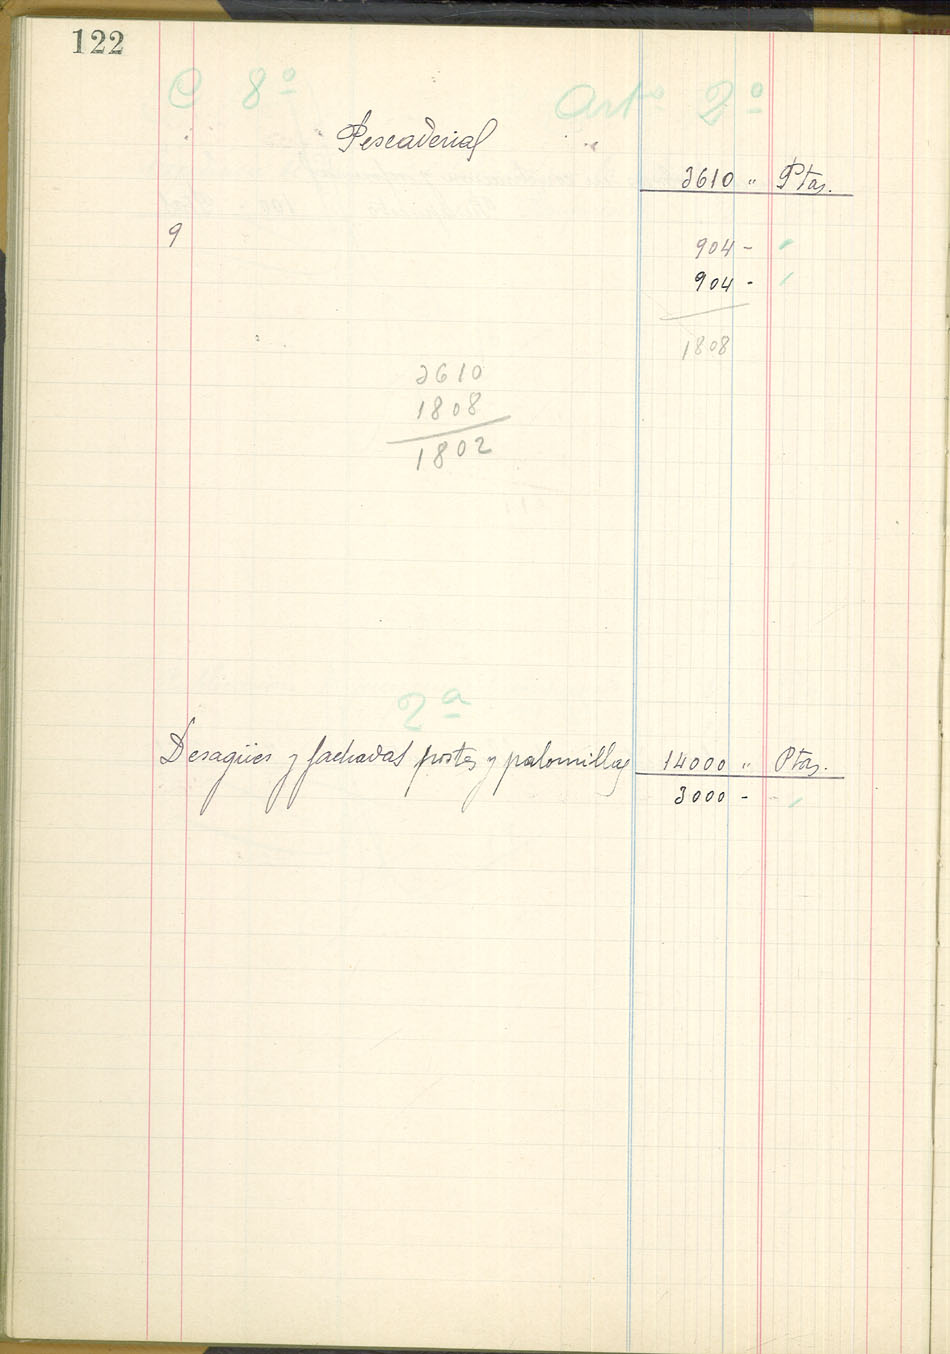 122
C 8º Artº 2º
Pescaderias
3610 " Ptas.
9
904 -
904 -
1808
3610
1808
1802
2ª
Desagües y fachadas postes y palomillas 14000 " Ptas.
3000 -